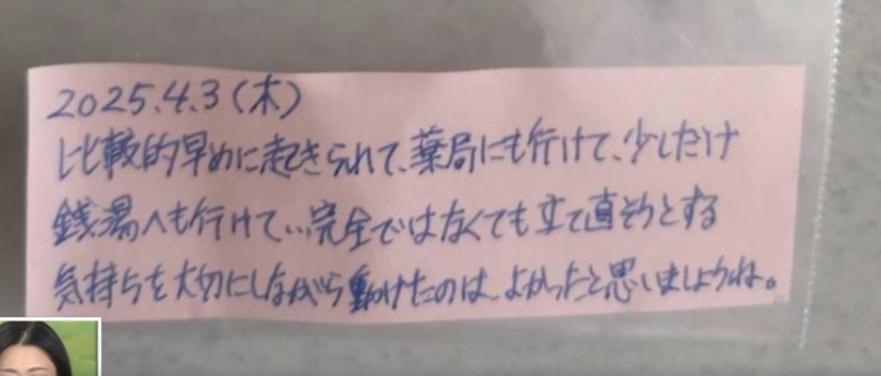 2025.4.3(木)
比較的早めに起きられて、薬局にも行けて、少しだけ
銭湯へも行けて…完全ではなくても立て直そうとする
気持ちを大切にしながら動けたのは、よかったと思いましょうね。